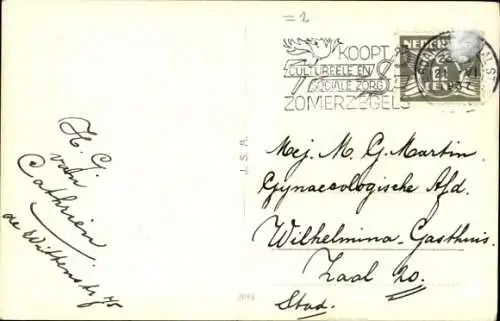 = 2
KOOPT
CULTUREELE EN
SOCIALE ZORG
ZOMERZEGELS
NEDERL
VI
1937
H. G.
van
Cathrien
de Wittenstr
J. S. A.
Mej. M. G. Martin.
Gynaecologische Afd.
Wilhelmina-Gasthuis.
Zaal 20.
Stad.